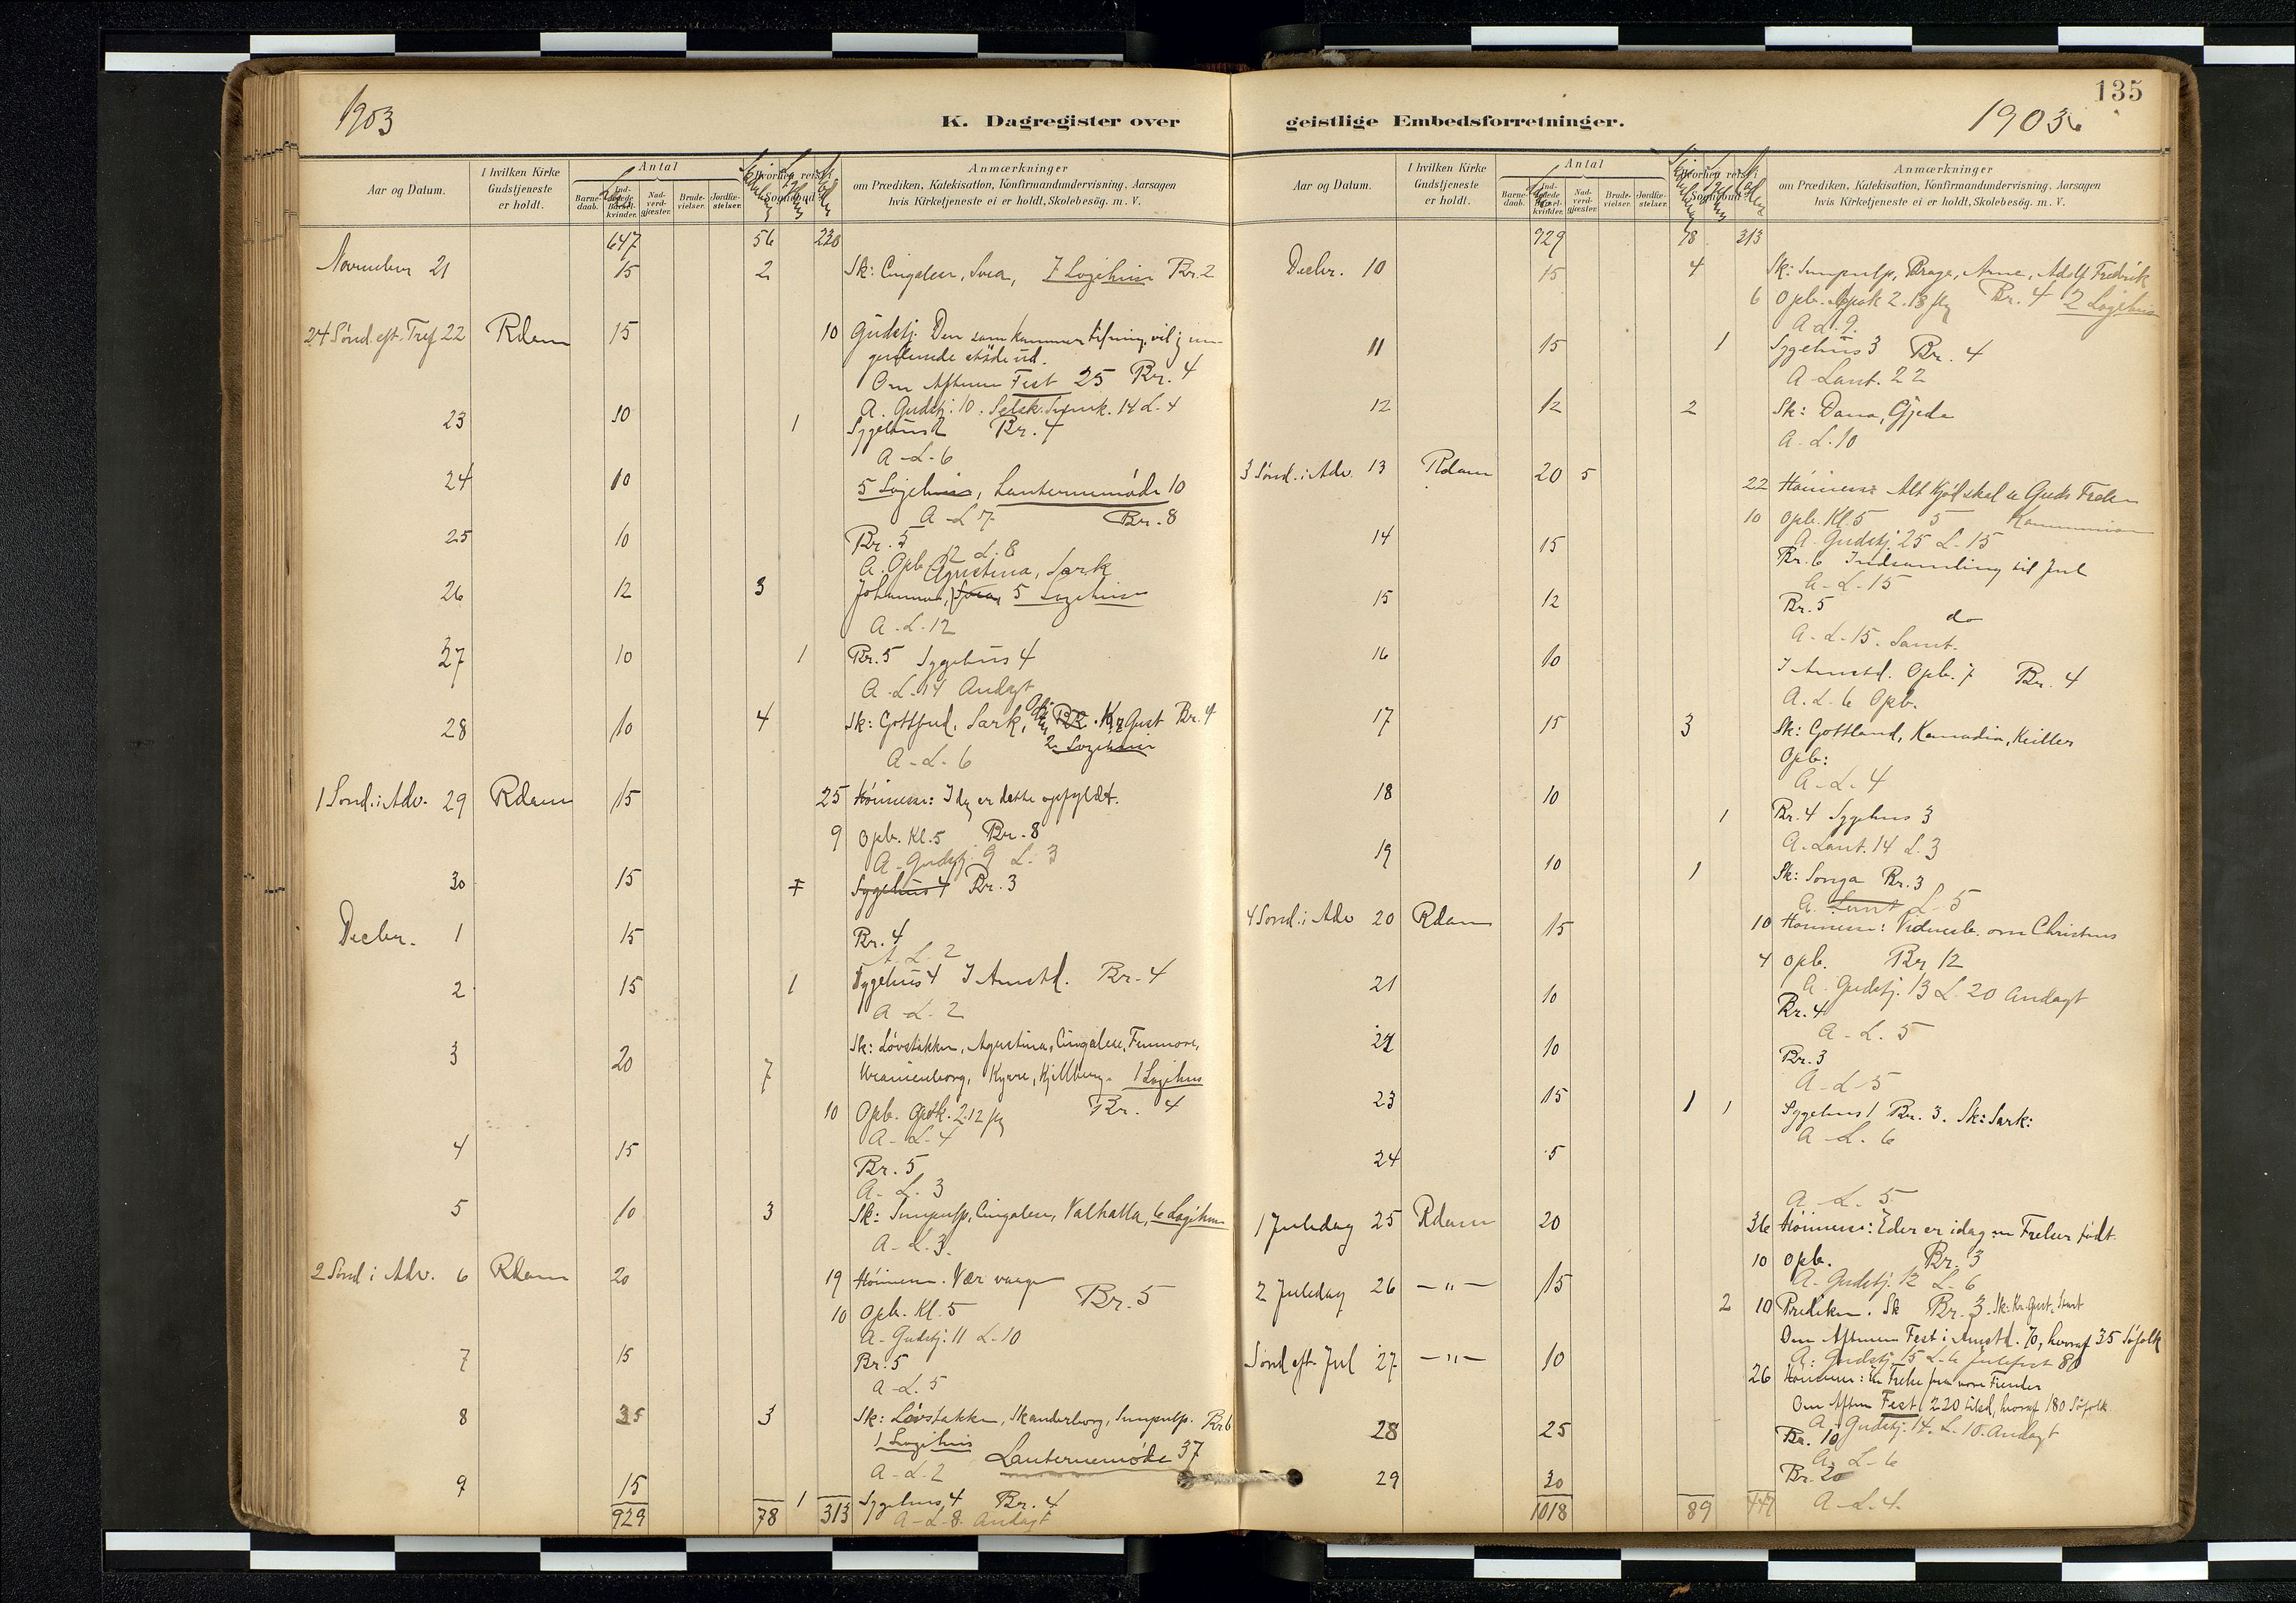 1903
K. Dagregister over
Aar og Datum.
I hvilken Kirke Gudstjeneste er holdt.
Antal
Barnedaab.
Nadverdgjæster.
Brudevielser.
Jordfæstelser.
Anmærkninger
om Prædiken, Katekisation, Konfirmandundervisning, Aarsagen
hvis Kirketjeneste ei er holdt, Skolebesög. m. V.
647 56 220
November 21 15 2 Sk: Cingalese, Svea, 7 Logihuse Br. 2
24 Sönd. eft. Tref 22 Rdam 15 10 Gudstj. Den som kommer til mig, vil jeg
støde ud.
Om Aftenen Fest 25 Br. 4
A. Gudstj. 10. 14 L. 4
23 10 1 Sygehus 2 Br. 4
A - L - 6
24 10 5 Logihuse, Lanternemöde 10
A - L 7 Br. 8
25 10 Br. 5
A. Opb. 12 L. 8
Agustina, Sark
26 12 3 Johanna, 5 Logihuse
A - L - 12
27 10 1 Br. 5 Sygehus 4
A - L - 14 Andagt
28 10 4 Sk: Gottfred, Sark, Kr Gust Br. 4
2 Logihuse
A - L - 6
1 Sönd. i Adv. 29 Rdam 15 25 Höimesse: I dag er dette opfyldt.
9 Opb. Kl. 5 Br. 8
A - Gudstj. 9 L. 3
30 15 Sygehus 4 Br. 3
Decbr. 1 15 Br. 4
A. L. 2
2 15 1 Sygehus 4 I Amstd. Br. 4
A - L - 2
Sk: Lövstakken, Agustina, Cingalese, Finmore,
3 20 7 Uranienborg, Kjellberg. 1 Logihus
10 Opb. Br. 4
A - L - 4
4 15 Br. 5
A - L. 3
5 10 3 Sk: Cingalese, Valhalla, 6 Logihuse
A - L. 3.
2 Sönd i Adv. 6 Rdam 20 19 Höimesse. Vær vaagen
10 Opb. Kl. 5 Br. 5
A - Gudstj. 11 L - 10
7 15 Br. 5
A - L. 5
8 35 3 Sk: Lövstakken, Skanderborg, Br 6
1 Logihus Lanternemöde 37
A - L - 2
9 15 1 Sygehus 4 Br. 4
929 78 313 A - L - 8. Andagt
135
geistlige Embedsforretninger.
1903
Aar og Datum.
I hvilken Kirke Gudstjeneste er holdt.
Antal
Barnedaab.
Nadverdgjæster.
Brudevielser.
Jordfæstelser.
Anmærkninger
om Prædiken, Katekisation, Konfirmandundervisning, Aarsagen
hvis Kirketjeneste ei er holdt, Skolebesög. m. V.
929 78 313
Decbr. 10 15 4 Sk: Braga, Arne, Adolf Fredrik
6 Opb. Br. 4 2 Logihuse
A L. 9.
11 15 1 Sygehus 3 Br. 4
A Lant. 22
12 12 2 Sk: Dana, Gjeda
A - L. 10
3 Sönd. i Adv. 13 Rdam 20 5 22 Höimesse: Alt Kjöd skal se Guds Frelse
10 Opb. Kl. 5 5 Kommunion
A. Gudstj. 25 L - 15
14 15 Br. 6 Indsamling til Jul
A - L - 15
15 12 Br. 5 do
A - L - 15.
16 10 I Amstd. Opb. 7 Br. 4
A. L. 6 Opb.
17 15 3 Sk: Gottland, Kamadia,
Opb:
A - L - 4
18 10 1 Br. 4 Sygehus 3
A. Lant. 14 L. 3
19 10 1 Sk: Songa Br. 3
A. Lant L 5
4 Sönd. i Adv 20 Rdam 15 10 Höimesse: Vidnesb. om Christus
4 Opb. Br 12
A. Gudstj. 13 L. 20 Andagt
21 10 Br. 4
A - L. 5
22 10 Br. 3
A - L 5
23 15 1 1 Sygehus 1 Br. 3. Sk: Sark:
A - L. 6
24 5
A - L. 5
1 Juledag 25 Rdam 20 36 Höimesse: Eder er idag en Frelser födt
10 Opb. Br. 3
A - Gudstj. 12 L - 6
2 Juledag 26 — " — 15 2 10 Prediken. Sk Br. 3
Om Aftenen Fest i Amstd. 70, hvoraf 35 Söfolk
A: Gudstj. 15 L. 6 Julefest 80
Sönd eft. Jul 27 — " — 10 26 Höimesse: En Frelse fra vore Fiender
Om Aften Fest 220 tilst, hvoraf 180 Söfolk
A - Gudstj. 14. L. 10. Andagt
28 25 Br. 10
A - L - 6
29 30 Br. 20
1018 89 447 A - L. 4.